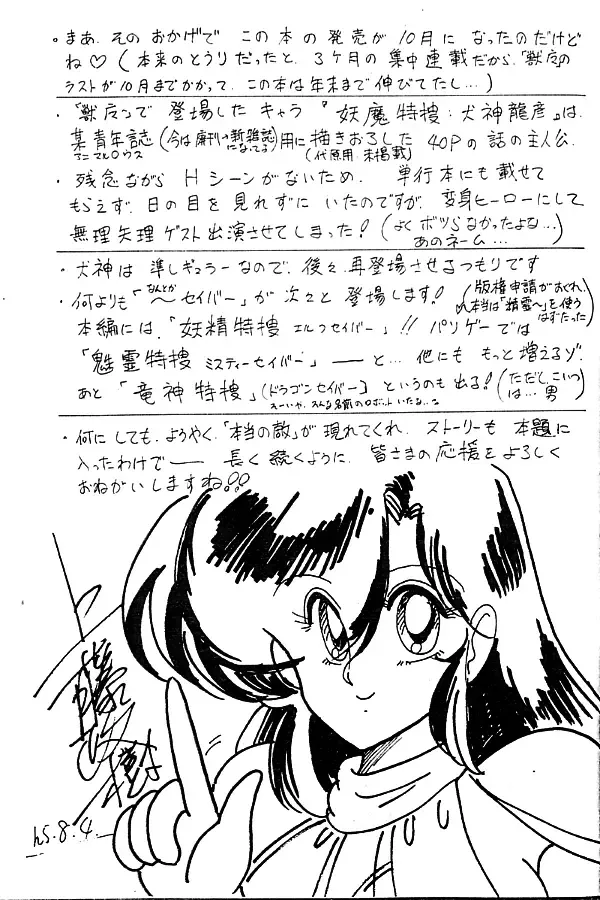 。まあ、そのおかげで この本の発売が 10月に なったのだけど
ね♡ (本来のとうりだったと、3ヶ月の 集中連載だから、「獣反」の
ラストが10月までかかって、この本は年末まで 伸びてたし…)
・「獣反」で 登場した キャラ 『妖魔特捜:犬神龍彦』は、
某青年誌 (今は廃刊→新雑誌になってる) 用に描きおろした 40Pの話の主人公。
アニマルハウス (代原用 未掲載)
・残念ながら Hシーンがないため、 単行本にも 載せて
もらえず、日の目を 見れずに いたのですが、変身ヒーローにして
無理矢理 ゲスト出演させてしまった! (よく ボツらなかったよな…
あのネーム…)
・犬神は 準レギュラーなので、後々、再登場させるつもりです
・何よりも「〜セイバー」が 次々と 登場します! (版権申請がおくれ、
なんとか 本当は「精霊〜」を使う
はずだった)
本編には、「妖精特捜 エルフセイバー」!! パソゲーでは
「魅霊特捜 ミスティーセイバー」 ――と… 他にも もっと増えるゾ、
あと 「竜神特捜」(ドラゴンセイバー) というのも 出る! (ただし、こいつ
は… 男)
えーいや、そんな名前のロボットいたな…
・何にしても、ようやく、「本当の敵」が 現れてくれ、 ストーリーも 本題に
入ったわけで―― 長く 続くように、 皆さまの応援をよろしく
おねがいしますね!!
h5.8.4